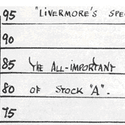 95 "LIVERMORE'S SPE
90
85 THE ALL-IMPORTANT
80 OF STOCK "A".
75